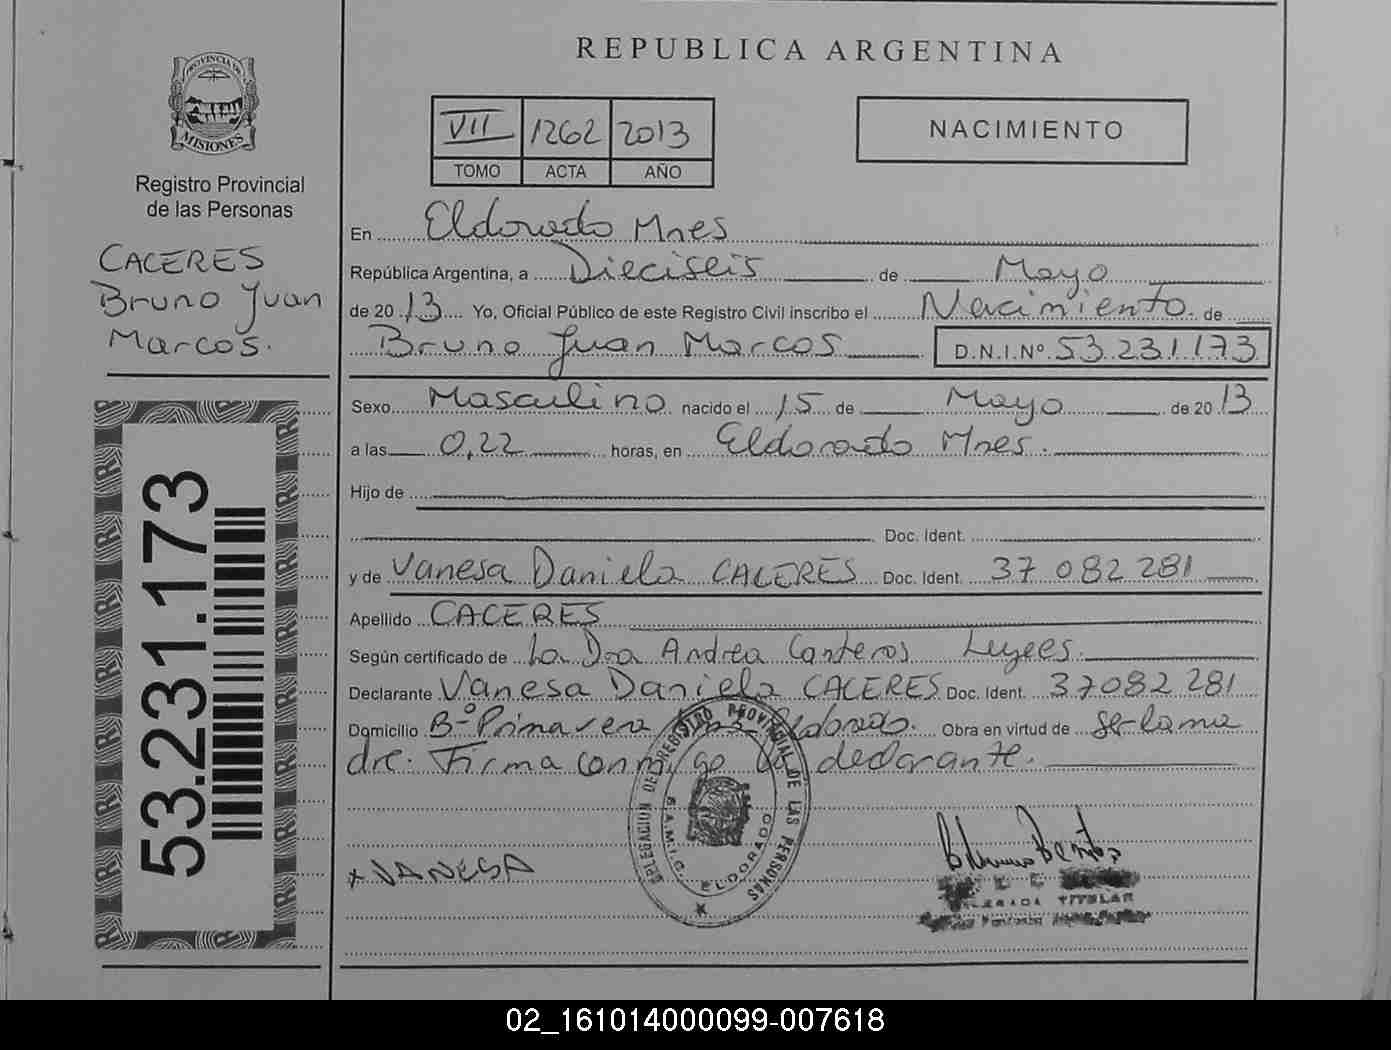 REPUBLICA ARGENTINA
PROVINCIA DE MISIONES
Registro Provincial
de las Personas
CACERES
Bruno Juan
Marcos.
53.231.173
VII 1262 2013
TOMO ACTA AÑO
NACIMIENTO
En Eldorado Mnes
República Argentina, a Dieciseis de Mayo
de 2013 Yo, Oficial Público de este Registro Civil inscribo el Nacimiento. de
Bruno Juan Marcos D.N.I.Nº 53.231.173
Sexo Masculino nacido el 15 de Mayo de 2013
a las 0,22 horas, en Eldorado Mnes.
Hijo de
Doc. Ident.
y de Vanesa Daniela CACERES Doc. Ident. 37 082 281
Apellido CACERES
Según certificado de La Dra Andrea Canteros
Declarante Vanesa Daniela CACERES Doc. Ident. 37082 281
Domicilio Bº Primavera Eldorado. Obra en virtud de ser la ma
dre. Firma conmigo la declarante.
DELEGACION DEL REGISTRO PROVINCIAL DE LAS PERSONAS
ELDORADO
x VANESA
TITULAR
02_161014000099-007618